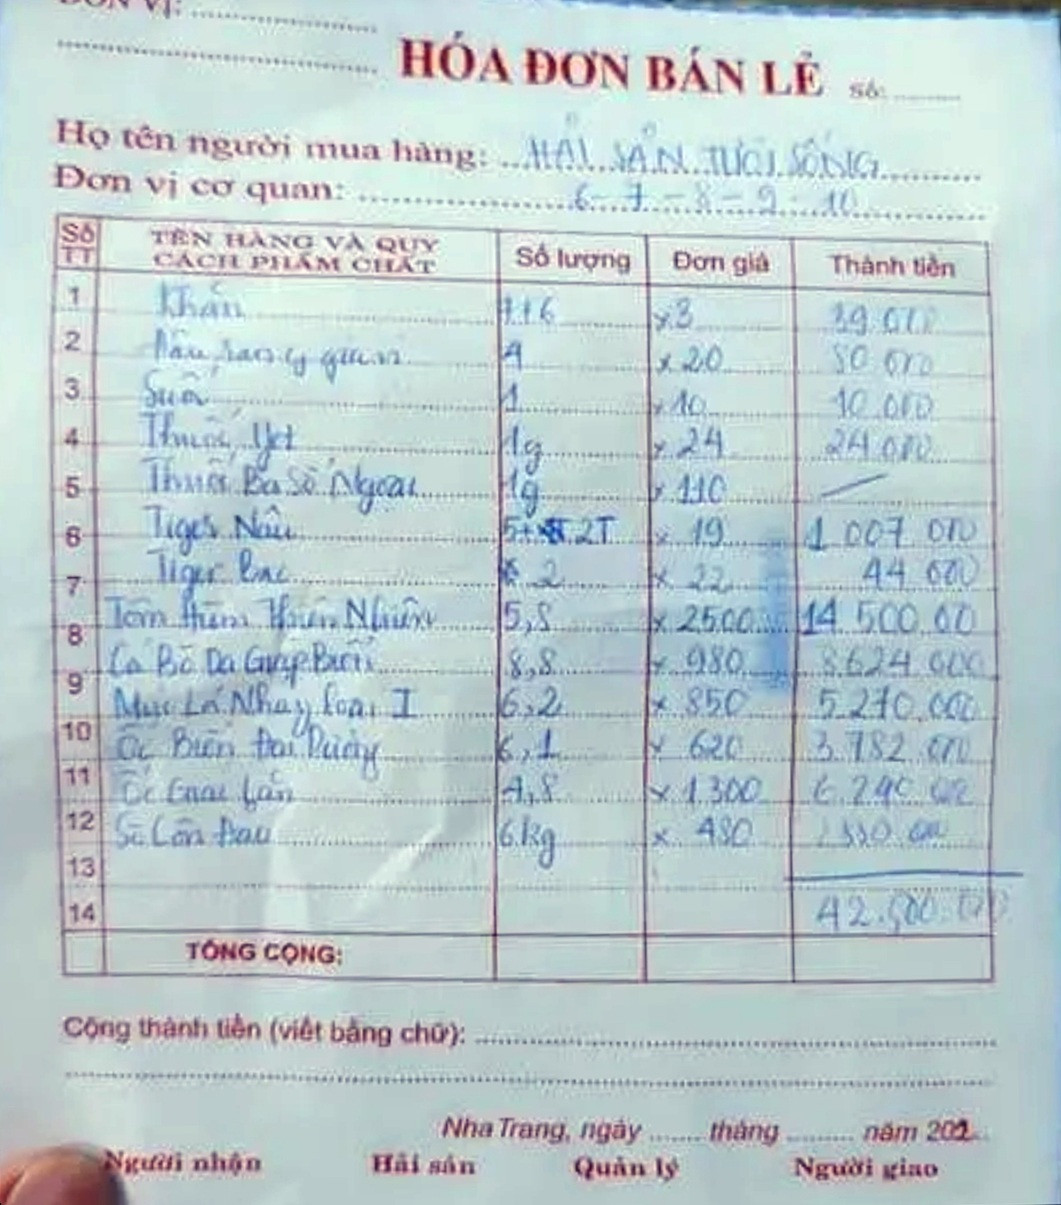 ĐƠN VỊ:
HÓA ĐƠN BÁN LẺ Số:
Họ tên người mua hàng: HẢI SẢN TƯƠI SỐNG
Đơn vị cơ quan: 6-7-8-9-10
Số TT TÊN HÀNG VÀ QUY CÁCH PHẨM CHẤT Số lượng Đơn giá Thành tiền
1 Khăn x3 39.000
2 4 x 20 80 000
3 Suối 1 x 10 10.000
4 Thuốc Jet 1g x 24 24.000
5 Thuốc Ba Số Ngoại 1g x 110
6 Tiger Nâu 5+ 2T x 19 1 007 000
7 Tiger Bạc 2 x 22 44 000
8 Tôm Hùm Thiên Nhiên 5,8 x 2500 14 500.00
9 Cá Bò Da Giáp Biển 8,8 x 980 8.624 000
10 Mực Lá Nháy Loại I 6,2 x 850 5.270.000
Ốc Biển Đại Dương 6,1 x 620 3.782 000
11 Ốc Gai Lớn 4,8 x 1.300 6.240
12 Sò Lông 6kg x 480
13
14 42.500.000
TỔNG CỘNG:
Cộng thành tiền (viết bằng chữ):
Nha Trang, ngày tháng năm 202
Người nhận Hải sản Quản lý Người giao